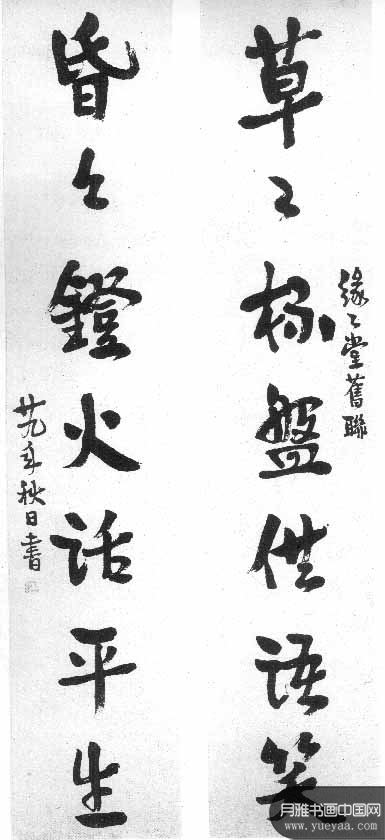 草々杯盤供語笑
緣々堂舊聯
昏々鐙火話平生
廿九年秋日書
月雅书画中国网
www.yueyaa.com